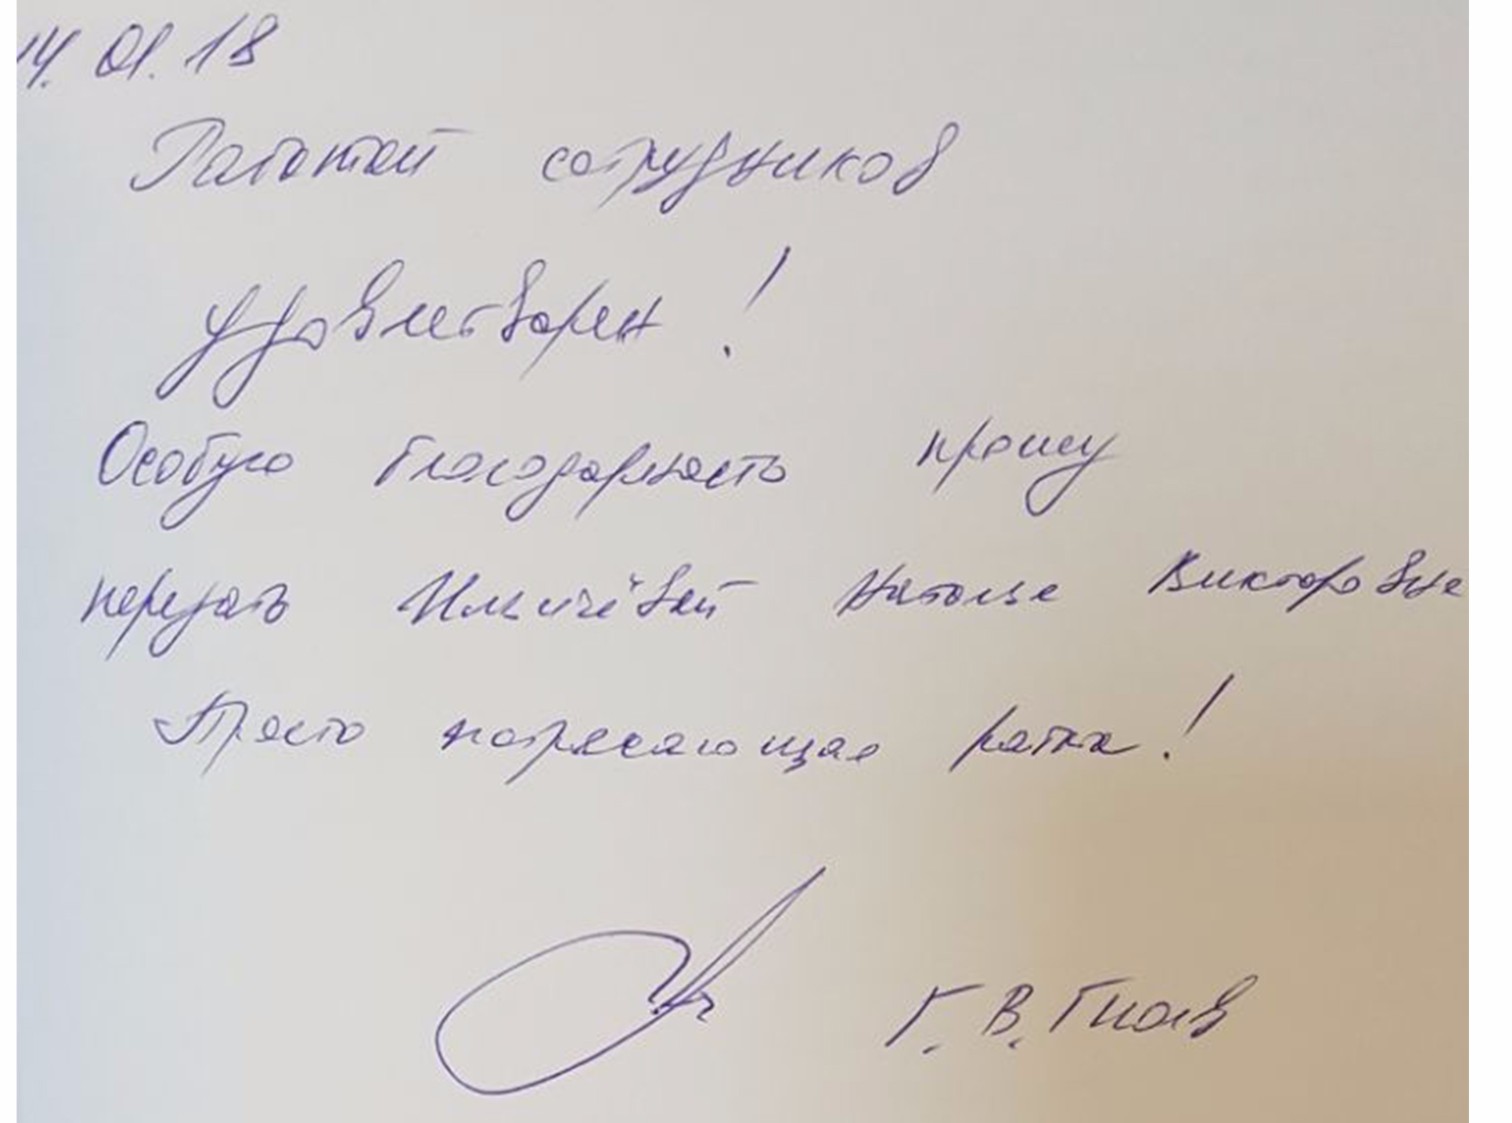 14.01.18
Работой сотрудников
удовлетворен!
Особую благодарность прошу
передать Наталье Викторовне
Просто потрясающая
Г. В.